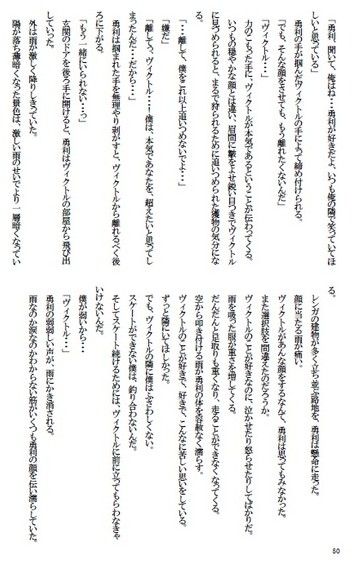 「勇利、聞いて、俺はね・・勇利が好きだよ、いつも俺の隣で笑っていてほ
しいと思っている」
勇利の手が掴んでヴィクトルの手によって締め付けられる。
「でも、そんな顔をさせても、もう離れたくないんだ」
「ヴィクトル・・」
力のこもった手に、ヴィクトルが本気であるということが伝わってくる。
いつもの穏やかな顔とは違い、眉間に皺をよせ鋭い目つきでヴィクトル
に見つめられると、まるで狩られるために追いつめられた獲物の気分にな
る。
「・・離して、僕をこれ以上追いつめないでよ・・」
「嫌だ」
「離して、ヴィクトル・・！僕は、本気であなたを、超えたいと思ってし
まったんだ・・だから・・」
勇利は掴まれた手を無理やり剥がすと、ヴィクトルから離れるべく後
ろに下がる。
「もう一緒にいられない・・っ」
玄関のドアを後ろ手に開けると、勇利はヴィクトルの部屋から飛び出
していった。
外は雨が激しく降りしきっていた。
陽が落ち薄暗くなった景色は、激しい雨のせいでより一層暗くなってい
る。
レンガの建物が多く立ち並ぶ路地を、勇利は懸命に走った。
顔に当たる雨が痛い。
ヴィクトルがあんな顔をするなんて、勇利は思ってもみなかった。
また選択肢を間違えたのだろうか。
ヴィクトルのことが好きなのに、泣かせたり怒らせたりしてばかりだ。
雨を吸った服が重さを増してくる。
だんだんと足取りも重くなり、走ることができなくなってくる。
空から叩き付ける雨が勇利の体を容赦なく濡らす。
ヴィクトルのことが好きで、好きで、こんなに苦しい思いをしている。
ずっと隣にいてほしかった。
でも、ヴィクトルの隣に僕はふさわしくない。
スケートができない僕は、釣り合わないんだ。
そしてスケート続けるためには、ヴィクトルに前に立ってもらわなきゃ
いけないんだ。
僕が弱いから・・
「ヴィクトル・・」
勇利の弱弱しい声が、雨にかき消される。
雨なのか涙なのかわからない筋がいくつも勇利の顔を伝い濡らしていた。
50